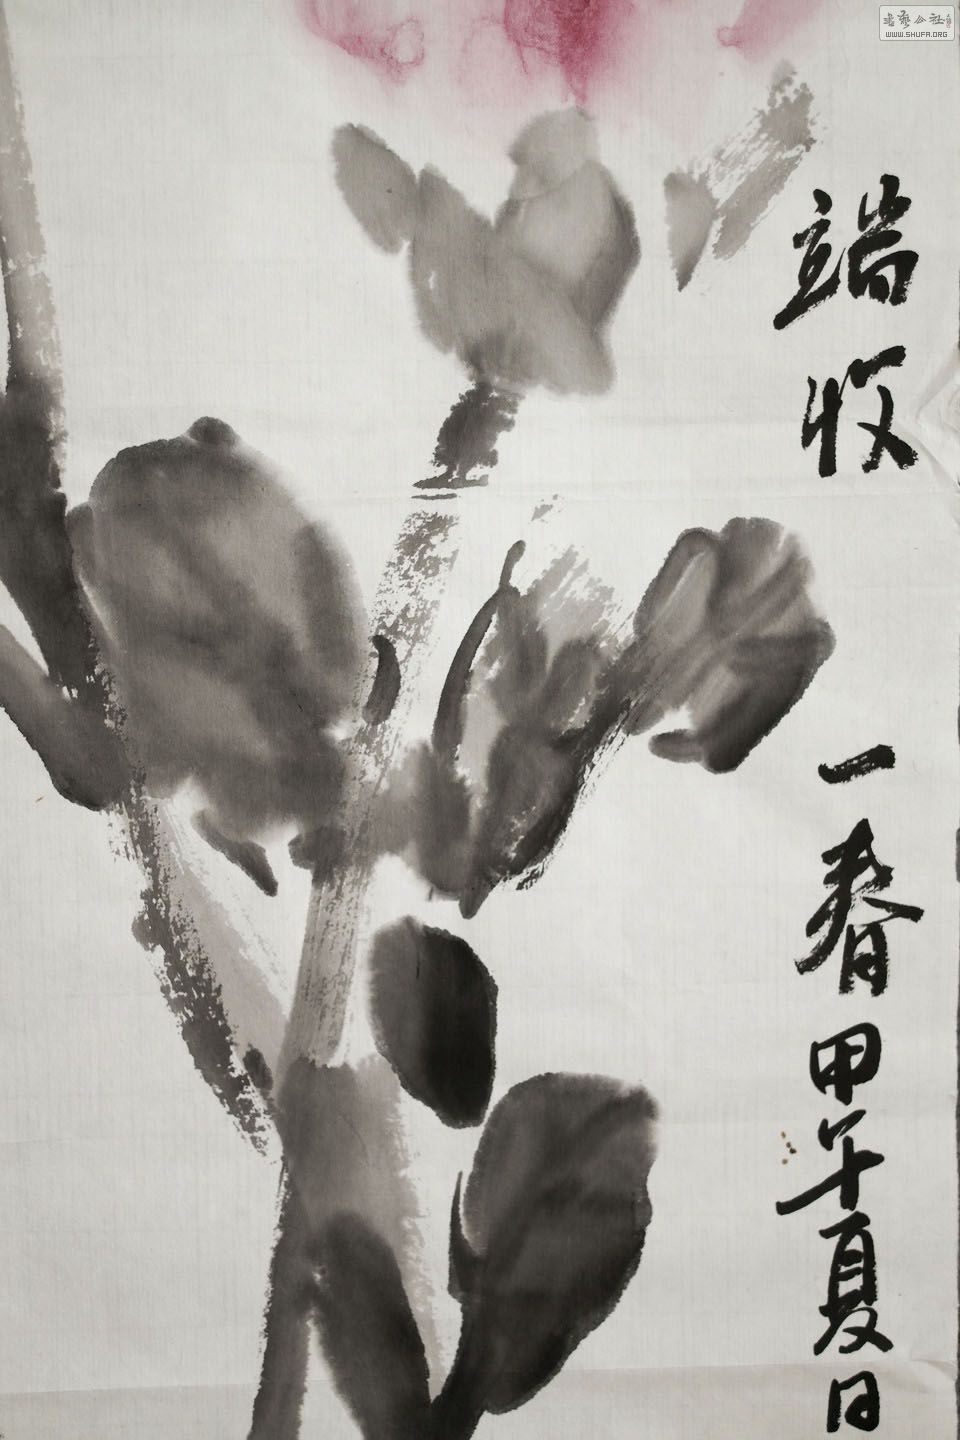 端收一春甲午夏日
書藝公社
WWW.SHUFA.ORG